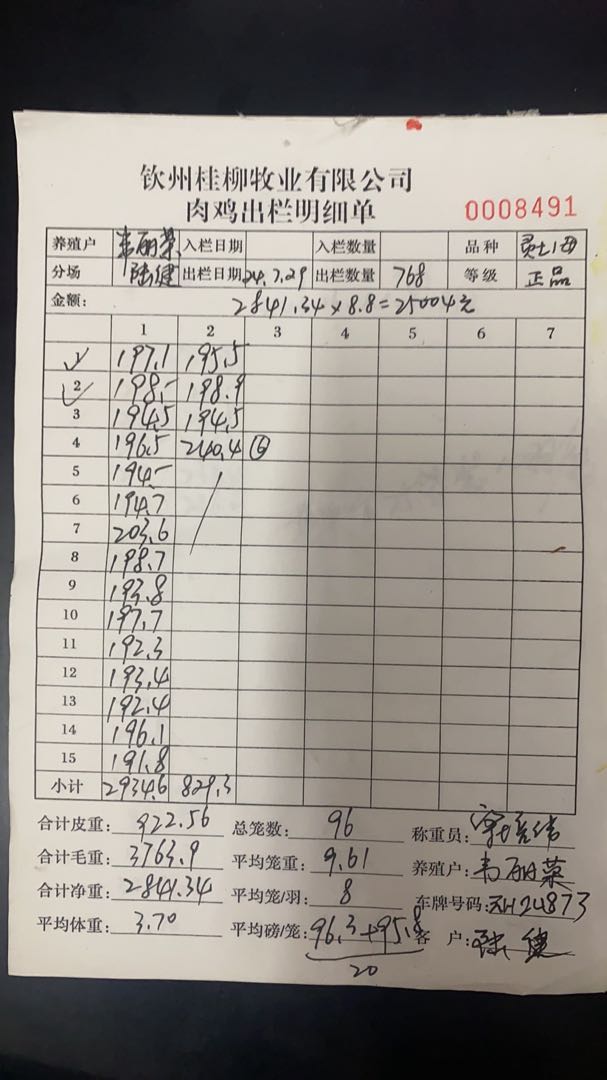 钦州桂柳牧业有限公司
肉鸡出栏明细单 0008491
养殖户 韦丽菜 入栏日期 入栏数量 品种
分场 陆健 出栏日期 24.7.29 出栏数量 768 等级 正品
金额: 2841.34×8.8=25004元
1 2 3 4 5 6 7
1 197.1 195.5
2 198.- 198.9
3 194.5 194.5
4 196.5 240.4 ⑥
5 194.-
6 194.7
7 203.6
8 198.7
9 193.8
10 197.7
11 192.3
12 193.4
13 192.4
14 196.1
15 191.8
小计 2934.6 829.3
合计皮重: 922.56 总笼数: 96 称重员:
合计毛重: 3763.9 平均笼重: 9.61 养殖户: 韦丽菜
合计净重: 2841.34 平均笼/羽: 8 车牌号码: 24873
平均体重: 3.70 平均磅/笼: 96.3+95.8 客户: 陆健
20